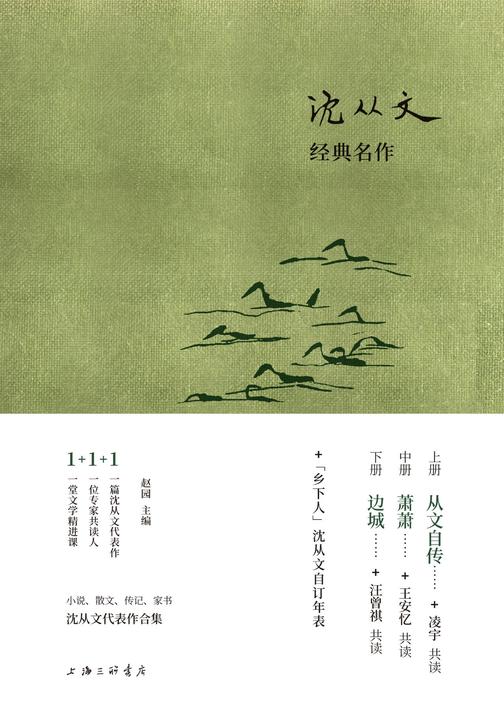 沈从文
经典名作
上册 从文自传…… + 凌宇 共读
中册 萧萧…… + 王安忆 共读
下册 边城…… + 汪曾祺 共读
+「乡下人」沈从文自订年表
赵园 主编
1+1+1
一篇沈从文代表作
一位专家共读人
一堂文学精进课
小说、散文、传记、家书
沈从文代表作合集
上海三联书店